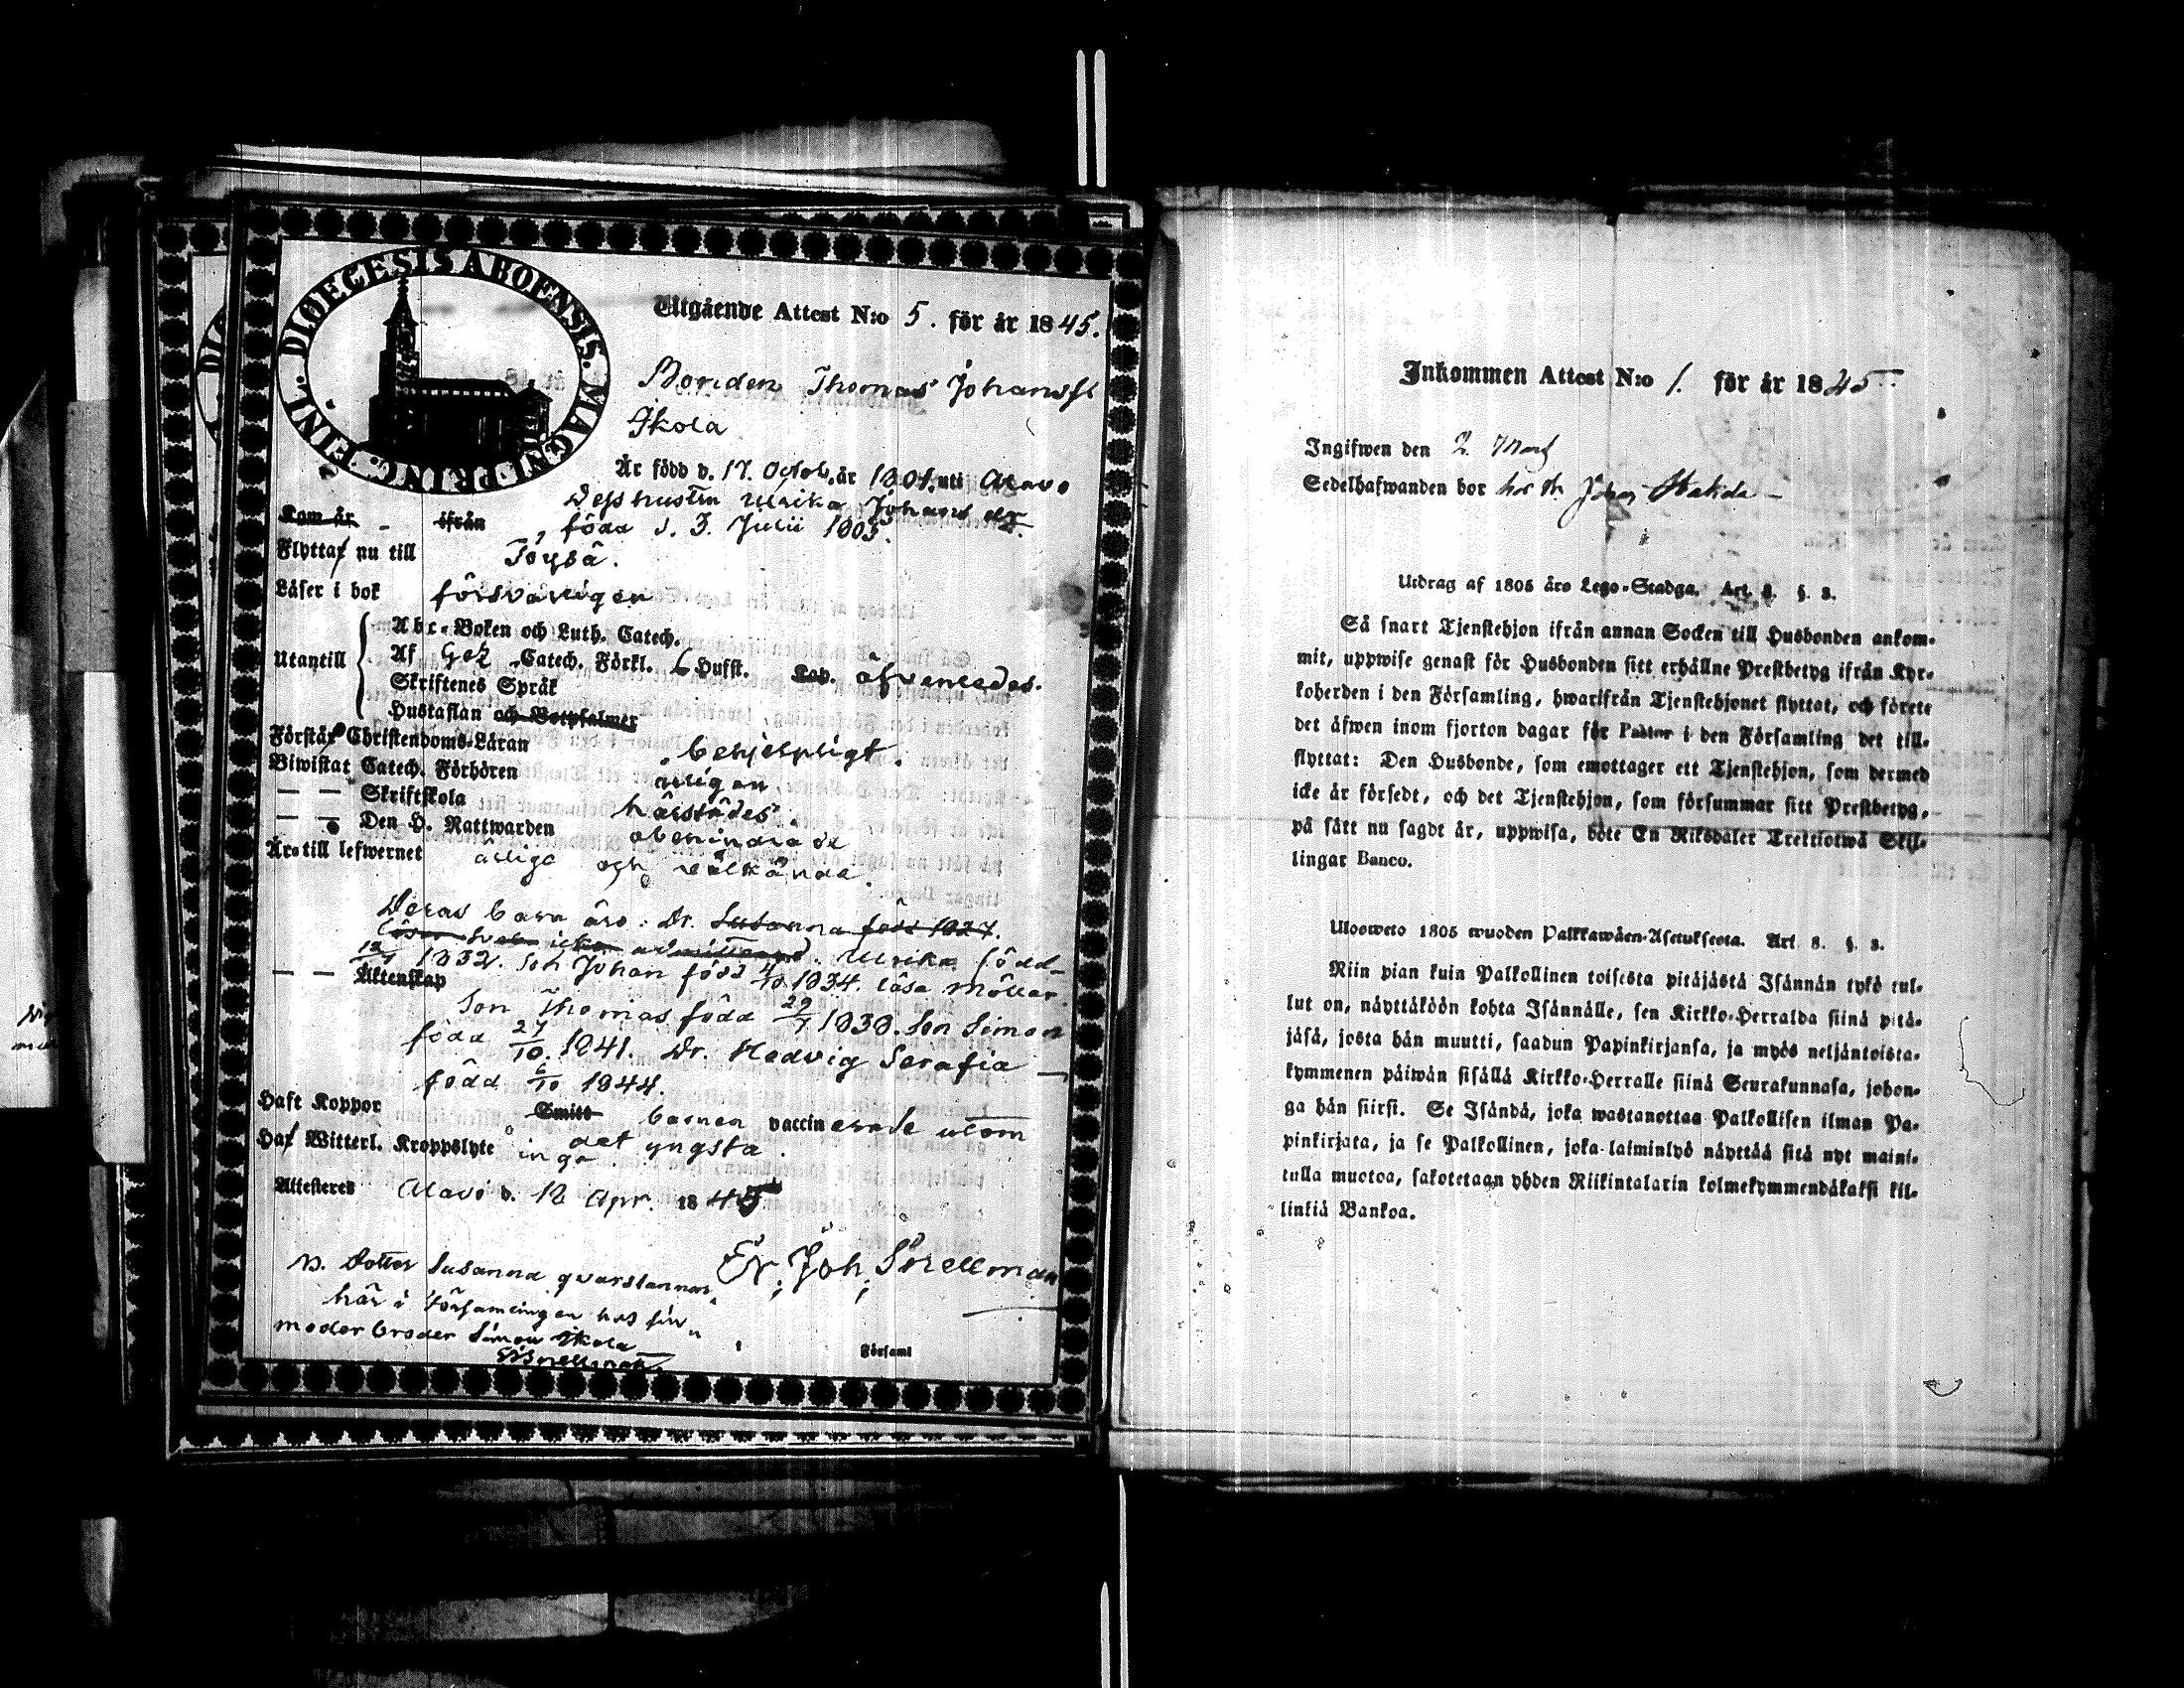 DIOECESIS ABOENSIS. MAGNI PRINC. FINL.
Utgående Attest N:o 5. för år 1845.
Bonden Thomas Johanss.
Skola
Är född d. 17. Octob. år 1801. uti Alavo
Dess hustru Ulrika Johans dr.
Kom år - ifrån , född d. 3. Julii 1805.
Flyttar nu till Töysä.
Läser i bok försvarligen
Abc-Boken och Luth. Catech.
Utantill Af Gez. Catech. Förkl. 6 Hufst. Kap. äfvenledes.
Skriftenes Språk
Hustaflan och Botpsalmer
Förstår Christendoms-Läran behjelpligt.
Biwistat Catech. Förhören årligen
— — Skriftskola härstädes
— — Den H. Nattwarden obehindrade
Är till lefwernet ärliga och välkända.
Deras barn äro: Dr. Susanna född 1827.
1832. Son Johan född 1834. läsa
— — Äktenskap
Son Thomas född 29/7 1838. Son Simon
född 27/10. 1841. Dr. Hedvig Serafia —
född 6/10 1844.
Haft Koppor Smitt barnen vaccinerade utom
det yngsta.
Haf Witterl. Kroppslyte inga
Attesteres Alavo d. 12 Apr. 1845
Er. Joh. Snellman
Dotter Susanna qvarstannar
här i församlingen hos sin
moder broder Simon Skola —
Snellman
Församl
Inkommen Attest N:o 1. för år 1845
Ingifwen den 2 Maj
Sedelhafwanden bor hos
Utdrag af 1805 års Lego-Stadga. Art. 8. §. 3.
Så snart Tjenstehjon ifrån annan Socken till Husbonden ankom-
mit, uppwise genast för Husbonden sitt erhållne Prestbetyg ifrån Kyr-
koherden i den Församling, hwarifrån Tjenstehjonet flyttat, och förete
det äfwen inom fjorton dagar för Pastor i den Församling det till-
flyttat: Den Husbonde, som emottager ett Tjenstehjon, som dermed
icke är försedt, och det Tjenstehjon, som försummar sitt Prestbetyg,
på sätt nu sagdt är, uppwisa, böte En Riksdaler Trettiotwå Skil-
lingar Banco.
Ulosweto 1805 wuoden Palkkawäen-Asetuksesta. Art. 8. §. 3.
Niin pian kuin Palkollinen toisesta pitäjästä Isännän tykö tul-
lut on, näyttäköön kohta Isännälle, sen Kirkko-Herralda siinä pitä-
jäsä, josta hän muutti, saadun Papinkirjansa, ja myös neljäntoista-
kymmenen päiwän sisällä Kirkko-Herralle siinä Seurakunnasa, johon-
ga hän siirsi. Se Isändä, joka wastanottaa Palkollisen ilman Pa-
pinkirjata, ja se Palkollinen, joka laiminlyö näyttää sitä nyt maini-
tulla muotoa, sakotetaan yhden Riikintalarin kolmekymmendäkaksi kil-
linkiä Bankoa.